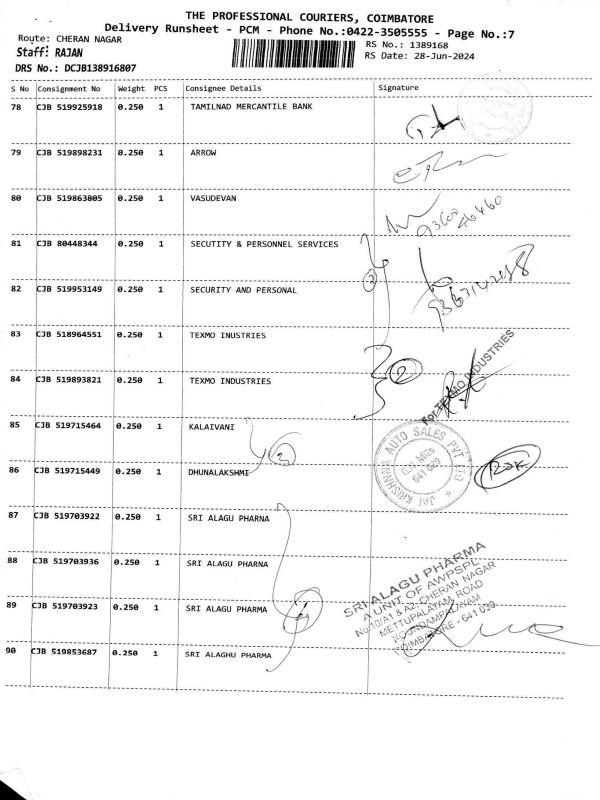 THE PROFESSIONAL COURIERS, COIMBATORE
Delivery Runsheet - PCM - Phone No.:0422-3505555 - Page No.:7
Route: CHERAN NAGAR
RS No.: 1389168
Staff: RAJAN
RS Date: 28-Jun-2024
DRS No.: DCJB138916807
S No Consignment No Weight PCS Consignee Details Signature
78 CJB 519925918 0.250 1 TAMILNAD MERCANTILE BANK
79 CJB 519898231 0.250 1 ARROW
80 CJB 519863805 0.250 1 VASUDEVAN
93600
46460
81 CJB 80448344 0.250 1 SECUTITY & PERSONNEL SERVICES
2
82 CJB 519953149 0.250 1 SECURITY AND PERSONAL
83 CJB 518964551 0.250 1 TEXMO INUSTRIES
For TEXMO INDUSTRIES
2
84 CJB 519893821 0.250 1 TEXMO INDUSTRIES
85 CJB 519715464 0.250 1 KALAIVANI
JAI KRISHNAA AUTO SALES PVT LTD
641 029
86 CJB 519715449 0.250 1 DHUNALAKSHMI
87 CJB 519703922 0.250 1 SRI ALAGU PHARNA
88 CJB 519703936 0.250 1 SRI ALAGU PHARNA
SRI ALAGU PHARMA
A UNIT OF AWPSPL
No.10/A1 & A2, CHERAN NAGAR
METTUPALAYAM ROAD
KOUNDAMPALAYAM
COIMBATORE - 641 030
89 CJB 519703923 0.250 1 SRI ALAGU PHARMA
90 CJB 519853687 0.250 1 SRI ALAGHU PHARMA